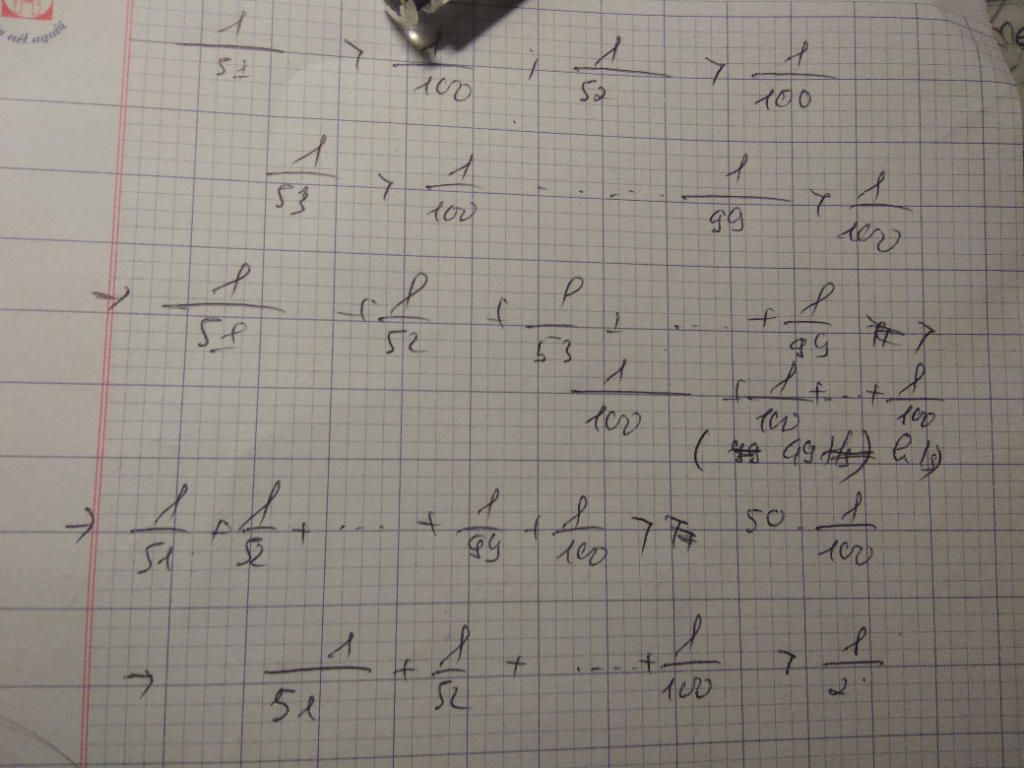 nét người
1/51 > 1/100 ; 1/52 > 1/100
1/53 > 1/100 ...... 1/99 > 1/100
→ 1/51 + 1/52 + 1/53 + ..... + 1/99 >
1/100 + 1/100 + ... + 1/100
( 49
→ 1/51 + 1/52 + .... + 1/99 + 1/100 > 50 . 1/100
→ 1/51 + 1/52 + ..... + 1/100 > 1/2.